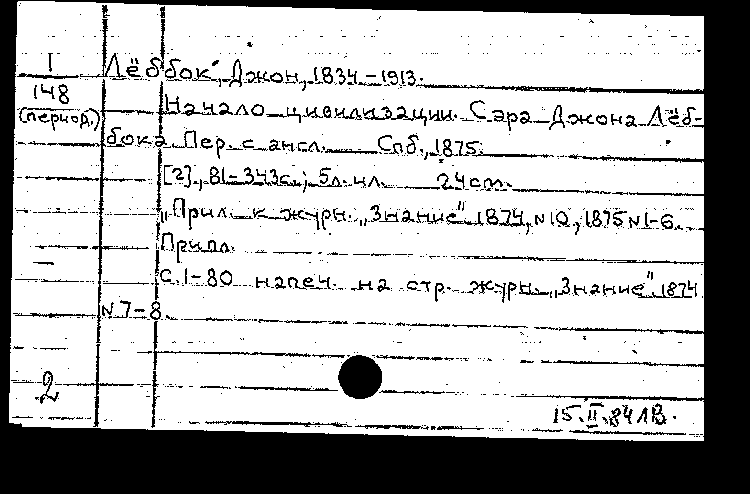 I
148
(период.)
Лёббок, Джон, 1834-1913.
Начало цивилизации. Сэра Джона Лёб-
бока. Пер. с англ. Спб., 1875.
[2], 81-343с.; 5л. ил. 24 cm.
"Прил. к журн. "Знание" 1874, N10, 1875 N1-6.
Припл.
с. 1-80 напеч. на стр. журн. "Знание". 1874
N 7-8.
2
15.II.84 ЛВ.